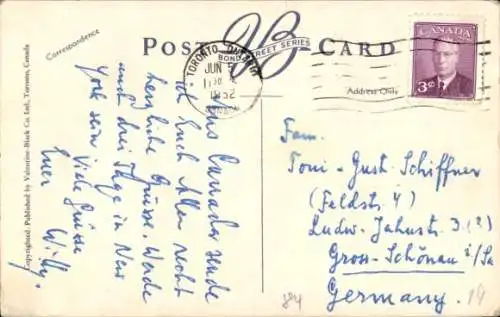 POST CARD
VB
BOND STREET SERIES
CANADA
3¢
TORONTO ONTARIO
JUN
1952
Correspondence
Address Only
Copyrighted, Published by Valentine-Black Co. Ltd., Toronto, Canada
Aus Canada sende
ich Euch Allen recht
herzliche Grüsse. Werde
auch drei Tage in New
York sein. Viele Grüsse
Euer Willy.
Fam.
Toni-Gust. Schiffner
(Feldstr. 4)
Ludw.-Jahnstr. 3 (2)
Gross-Schönau i/Sa
Germany.